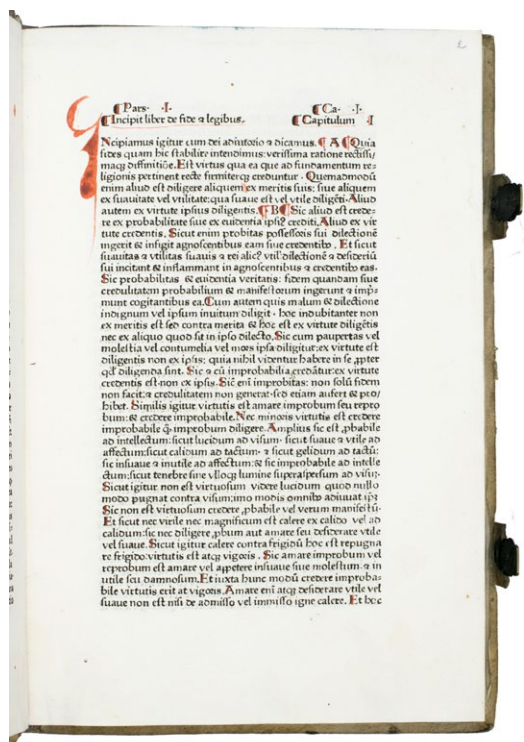 2
Pars· ·I· Ca· ·I·
Incipit liber de fide ⁊ legibus. Capitulum I
INcipiamus igitur cum dei adiutorio ⁊ dicamus. A Quia
fides quam hic stabilire intendimus: verissima ratione rectissi/
maqȝ diffinitiōe. Est virtus qua ea que ad fundamentum re⸗
ligionis pertinent recte firmiterqȝ creduntur · Quemadmodū
enim aliud est diligere aliquem ex meritis suis: siue aliquem
ex suauitate vel vtilitate: qua suaue est vel vtile diligēti. Aliud
autem ex virtute ipsius diligentis. B Sic aliud est crede⸗
re ex probabilitate siue ex euidentia ipsiꝰ crediti. Aliud ex vir
tute credentis. Sicut enim probitas possessoris sui dilectionē
ingerit & infigit agnoscentibus eam siue credentibꝰ. Et sicut
suauitas ⁊ vtilitas suauis ⁊ rei alicꝰ vtilꝰ dilectionē ⁊ desideriū
sui incitant & inflammant in agnoscentibus ⁊ credentibꝰ eas.
Sic probabilitas & euidentia veritatis: fidem quandam siue
credulitatem probabilium & manifestorum ingerunt ⁊ impͥ⸗
munt cogitantibus ea. Cum autem quis malum & dilectione
indignum vel ipsum inuitum diligit · hoc indubitanter non
ex meritis est sed contra merita & hoc est ex virtute diligētis
nec ex aliquo quod sit in ipso dilecto. Sic cum paupertas vel
molestia vel contumelia vel mors ipsa diligitur: ex virtute est
diligentis non ex ipsis; quia nihil videntur habere in se ꝓpter
qđ diligenda sint. Sic ⁊ cū improbabilia credātur: ex virtute
credentis est · non ex ipsis. Sic eni improbitas: non solū fidem
non facit: ⁊ credulitatem non generat · sed etiam aufert & pro/
hibet. Similis igitur virtutis est amare improbum seu repro
bum: & credere improbabile. Nec minoris virtutis est credere
improbabile ꝙ improbum diligere. Amplius sic est ꝓbabile
ad intellectum: sicut lucidum ad visum · sicut suaue ⁊ vtile ad
affectum: sicut calidum ad tactum · ⁊ sicut gelidum ad tactū:
sic insuaue ⁊ inutile ad affectum: & sic improbabile ad intelle
ctum: sicut tenebre sine vlloqȝ lumine superaspersum ad visūꝫ.
Sicut igitur non est virtuosum videre lucidum quod nullo
modo pugnat contra visum: imo modis omnibꝰ adiuuat ipȝ
Sic non est virtuosum credere ꝓbabile vel verum manifestū ·
Et sicut nec virile nec magnificum est calere ex calido vel ad
calidum: sic nec diligere ꝓbum aut amare seu desiderare vtile
vel suaue. Sicut igitur calere contra frigidū hoc est repugna
re frigido: virtutis est atqȝ vigoris. Sic amare improbum vel
reprobum est amare vel appetere insuaue siue molestum ⁊ in
utile seu damnosum. Et iuxta hunc modū credere improba⸗
bile virtutis erit at vigoris. Amare eni atqȝ desiderare vtile vel
suaue non est nisi de admisso vel immisso igne calere. Et hoc